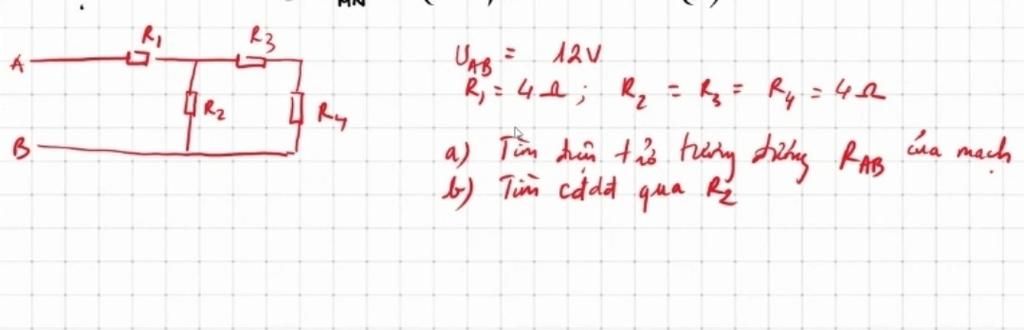 MN
R1 R3
A
R2 R4
B
U_AB = 12V
R1 = 4Ω ; R2 = R3 = R4 = 4Ω
a) Tìm điện trở tương đương R_AB của mạch
b) Tìm cđdđ qua R2